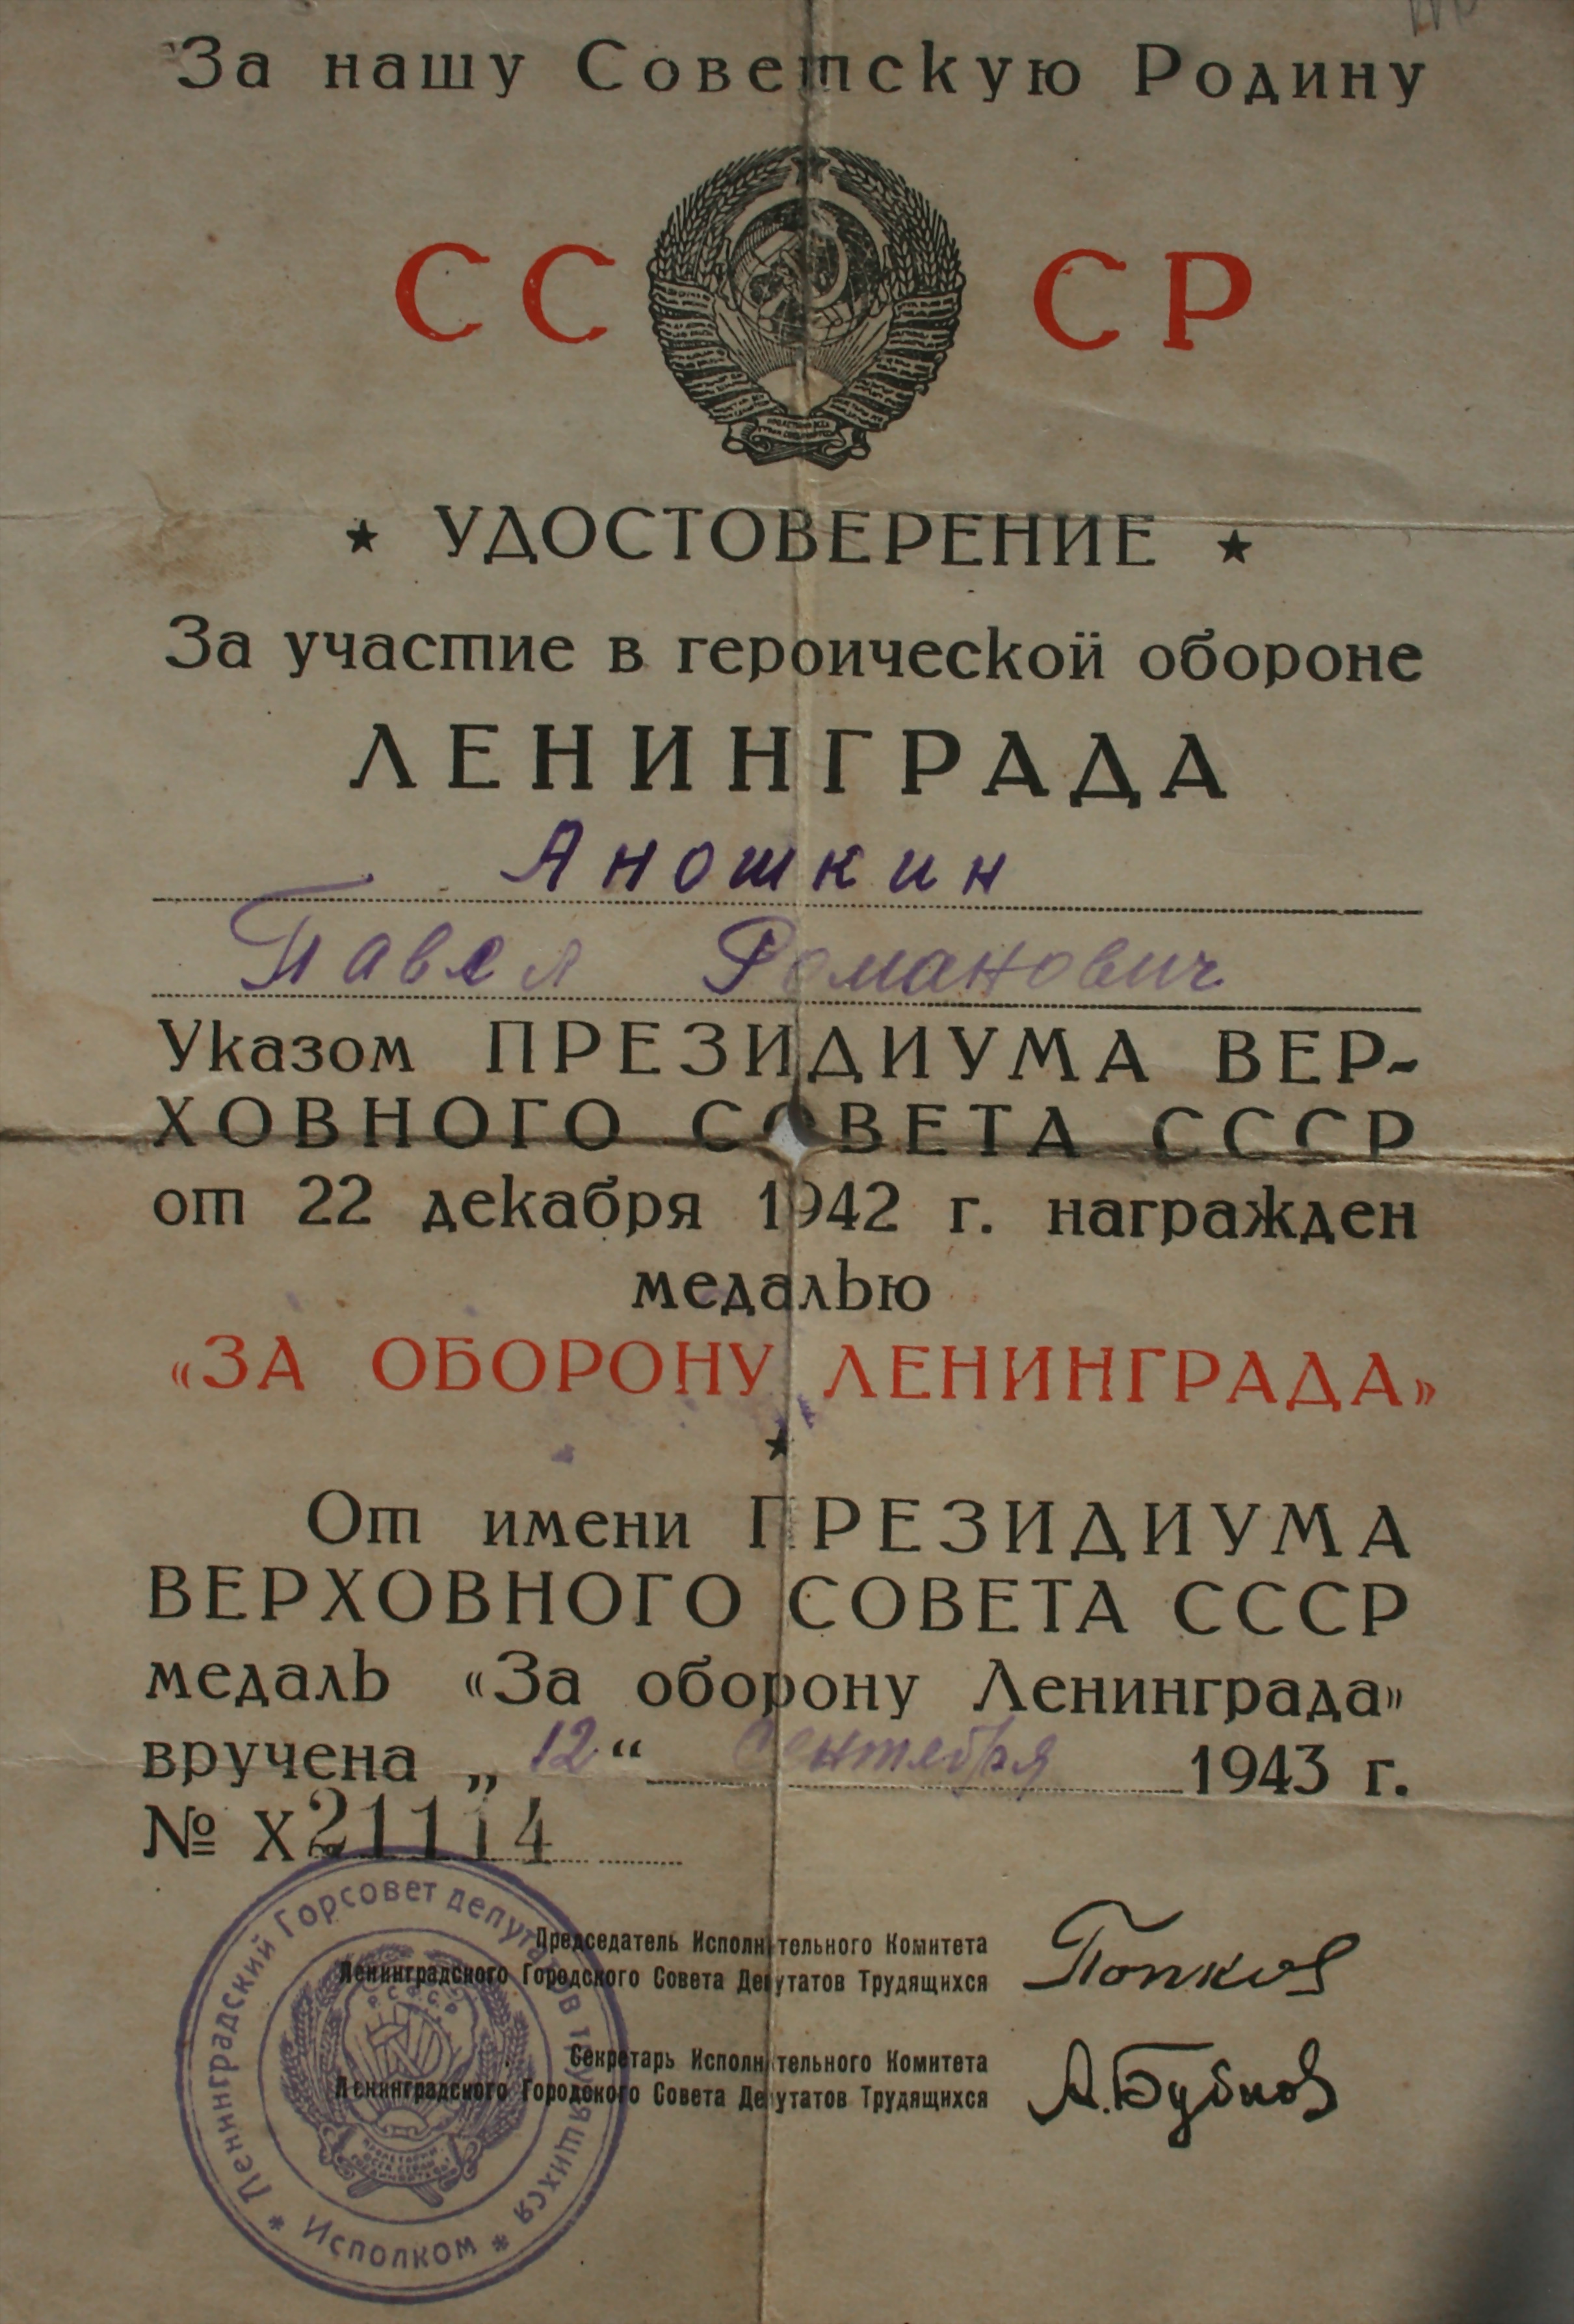 За нашу Советскую Родину
СССР
УДОСТОВЕРЕНИЕ
За участие в героической обороне
ЛЕНИНГРАДА
Аношкин
Павел Романович
Указом ПРЕЗИДИУМА ВЕР-
ХОВНОГО СОВЕТА СССР
от 22 декабря 1942 г. награжден
медалью
«ЗА ОБОРОНУ ЛЕНИНГРАДА»
От имени ПРЕЗИДИУМА
ВЕРХОВНОГО СОВЕТА СССР
медаль «За оборону Ленинграда»
вручена „12“ сентября 1943 г.
№ Х21114
Председатель Исполнительного Комитета
Ленинградского Городского Совета Депутатов Трудящихся
Попков
Секретарь Исполнительного Комитета
Ленинградского Городского Совета Депутатов Трудящихся
А. Бубнов
Ленинградский Горсовет депутатов трудящихся
* Исполком *